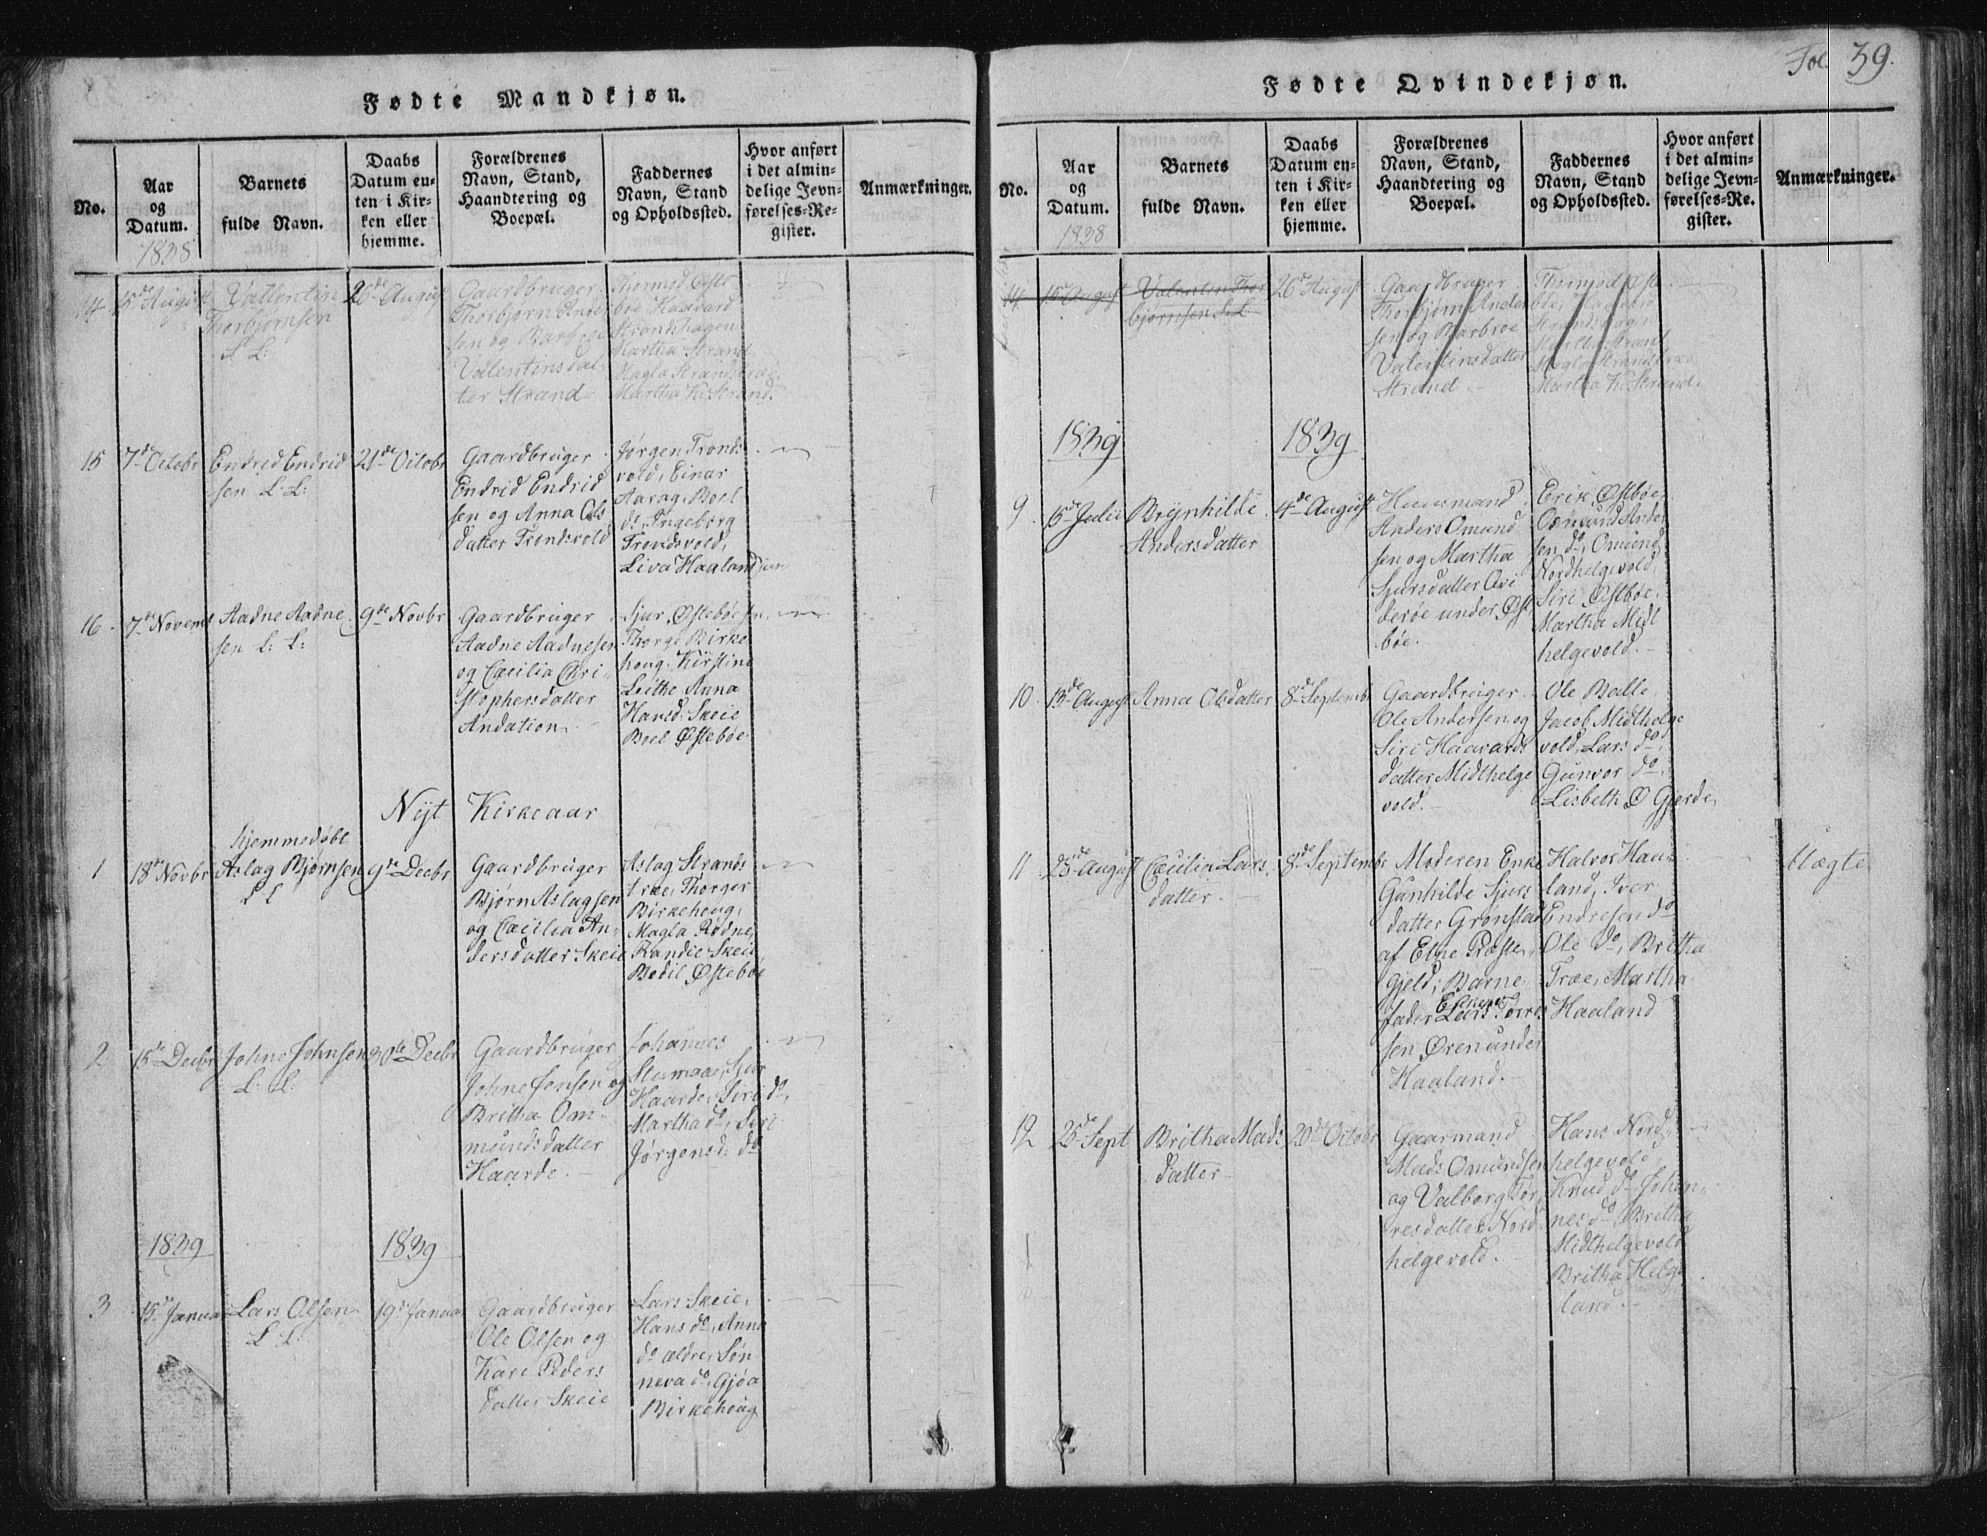 Fødte Mandkjøn.
No.
Aar
og
Datum.
1838
Barnets
fulde Navn.
Daabs
Datum en-
ten i Kir-
ken eller
hjemme.
Forældrenes
Navn, Stand,
Haandtering og
Boepæl.
Faddernes
Navn, Stand
og Opholdssted.
Hvor anført
i det almin-
delige Jevn-
førelses-Re-
gister.
Anmærkninger.
14
15de August
Vallentin
Thorbjørnsen
L L:
26de August
Gaardbruger
Thorbjørn Ander
sen og Barbroe
Valentinsdat
ter Strand
Thormod Øste
bøe Haavard
Strandshagen
Martha Strand
Magla Strandskrae
Martha K. Strand.
15
7de Octobr
Endrid Endrid
sen L: L:
21de Octobr
Gaardbruger
Endrid Endrid
sen og Anna Ols
datter Trondsvold
Jørgen Tronds
vold, Einar
Aarag, Boel
do, Ingeborg
Trondsvold,
Liva Haaland
16
7de Novembr
Aadne Aadne
sen L: L:
9de Novbr
Gaardbruger
Aadne Aadnesen
og Cæcilia Chri-
stophersdatter
Andation
Sjur Østebøe
Thorge Birke
houg, Kirstine
Leithe Anna
Hansd: Skeie
Boel Østebøe
Nyt Kirkeaar
1
18de Novbr
hjemmedøbt
Aslag Bjørnsen
L L
9de Decbr
Gaardbruger
Bjørn Aslagsen
og Cæcilia An-
dersdatter Skeie
Aslag Strands
træe, Thorger
Birkehoug,
Magla Rødne,
Randie Skeie,
Bodil Østebøe
2
15de Decbr
Johne Johnsen
L: L:
30te Decbr
Gaardbruger
Johne Jensen og
Britha Om-
mundsdatter
Haarde.
Johannes
Stumoe, Sjur
Haarde, Siri do,
Martha do, Siri
Jørgensd: do
1839
1839
3
15de Januar
Lars Olsen
L L:
19de Januar
Gaardbruger
Ole Olsen og
Kari Peders
datter Skeie
Lars Skeie,
Hans do, Anna
do ældre, Søn
neva do, Gjøa
Birkehoug
Fol. 39.
Fødte Qvindekjøn.
No.
Aar
og
Datum.
1838
Barnets
fulde Navn.
Daabs
Datum en-
ten i Kir-
ken eller
hjemme.
Forældrenes
Navn, Stand,
Haandtering og
Boepæl.
Faddernes
Navn, Stand
og Opholdssted.
Hvor anført
i det almin-
delige Jevn-
førelses-Re-
gister.
Anmærkninger.
14
15de August
Valentin Thor
bjørnsen L L
26de August
Gaardbruger
Thorbjørn Ander
sen og Barbroe
Valentinsdatter
Strand
Thormod Øste
bøe, Haavard
Strandshagen
Martha Strand,
Magla Strandstræe
Martha K: Strand.
1839
1839
9
15de Julii
Brynhilde
Andersdatter
4de August
Huusmand
Anders Omund
sen og Martha
Sjursdatter Qvi
terøe under Øst
bøe.
Erik Østbøe,
Omund Ander
sen do, Omund
Nordhelgevold,
Siri Østbøe,
Martha Midt
helgevold.
10
13de August
Anna Olsdatter
8de Septembr
Gaardbruger
Ole Andersen og
Siri Haavards
datter Midthelge
vold.
Ole Balle,
Jacob Midthelge
vold, Lars do,
Gunvor do,
Lisbeth Ø Gjerde,
11
25de August
Cæcilia Lars
datter.
8de Septembr
Moderen Enke
Gunhilde Sjurs
datter Grønstad
af Etne Præste-
gjeld; Barne
fader Lars Tørres
sen Øren under
Haaland.
Halvor Haa-
land, Iver
Endresen do
Ole do, Britha
Træe, Martha
Haaland
Uægte
12
25de Sept
Britha Mads
datter
20de Octobr
Gaarmand
Mads Omundsen
og Valborg Tør
resdatter Nord
helgevold.
Hans Nord
helgevold,
Knud do Johan-
nes do, Britha
Midthelgevold
Britha Helge
land.